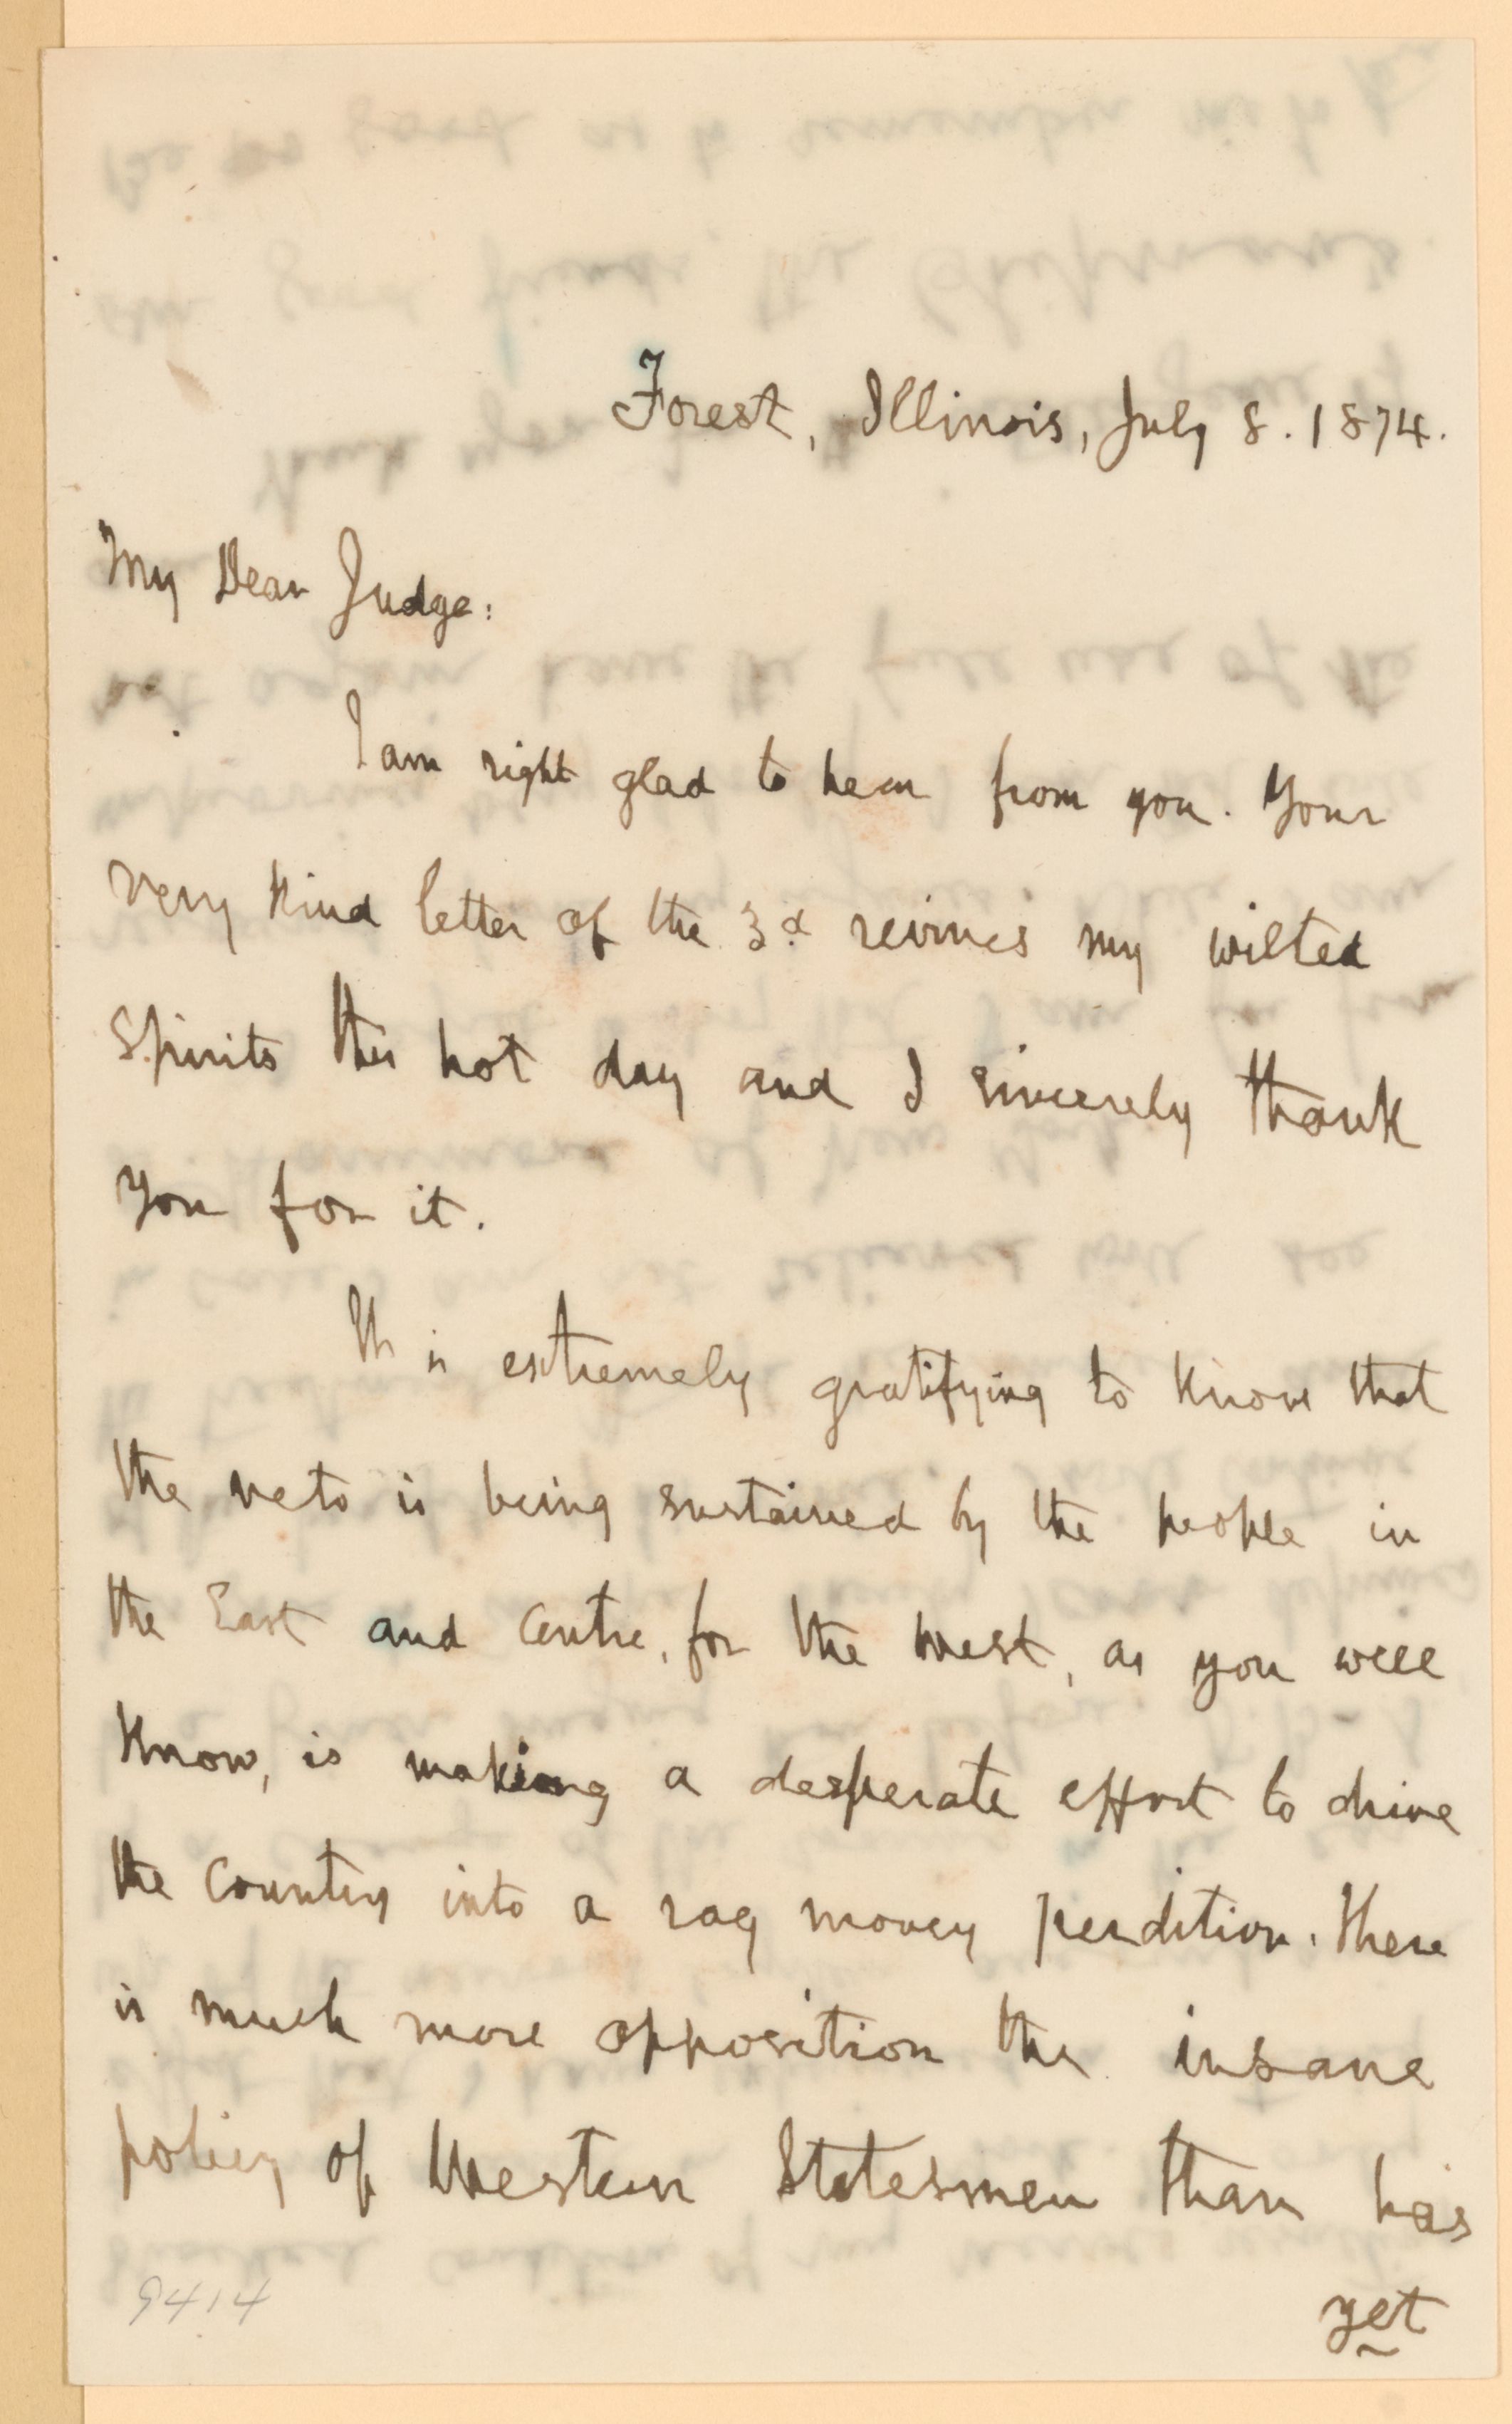 Forest, Illinois, July 8. 1874.
My Dear Judge:
I am right glad to hear from you. Your
very kind letter of the 3d revives my wilted
spirits this hot day and I sincerely thank
you for it.
It is extremely gratifying to know that
the veto is being sustained by the people in
the East and Centre, for the West, as you well
know, is making a desperate effort to drive
the country into a rag money perdition. There
is much more opposition the insane
policy of Western Statesmen than has
yet
9414